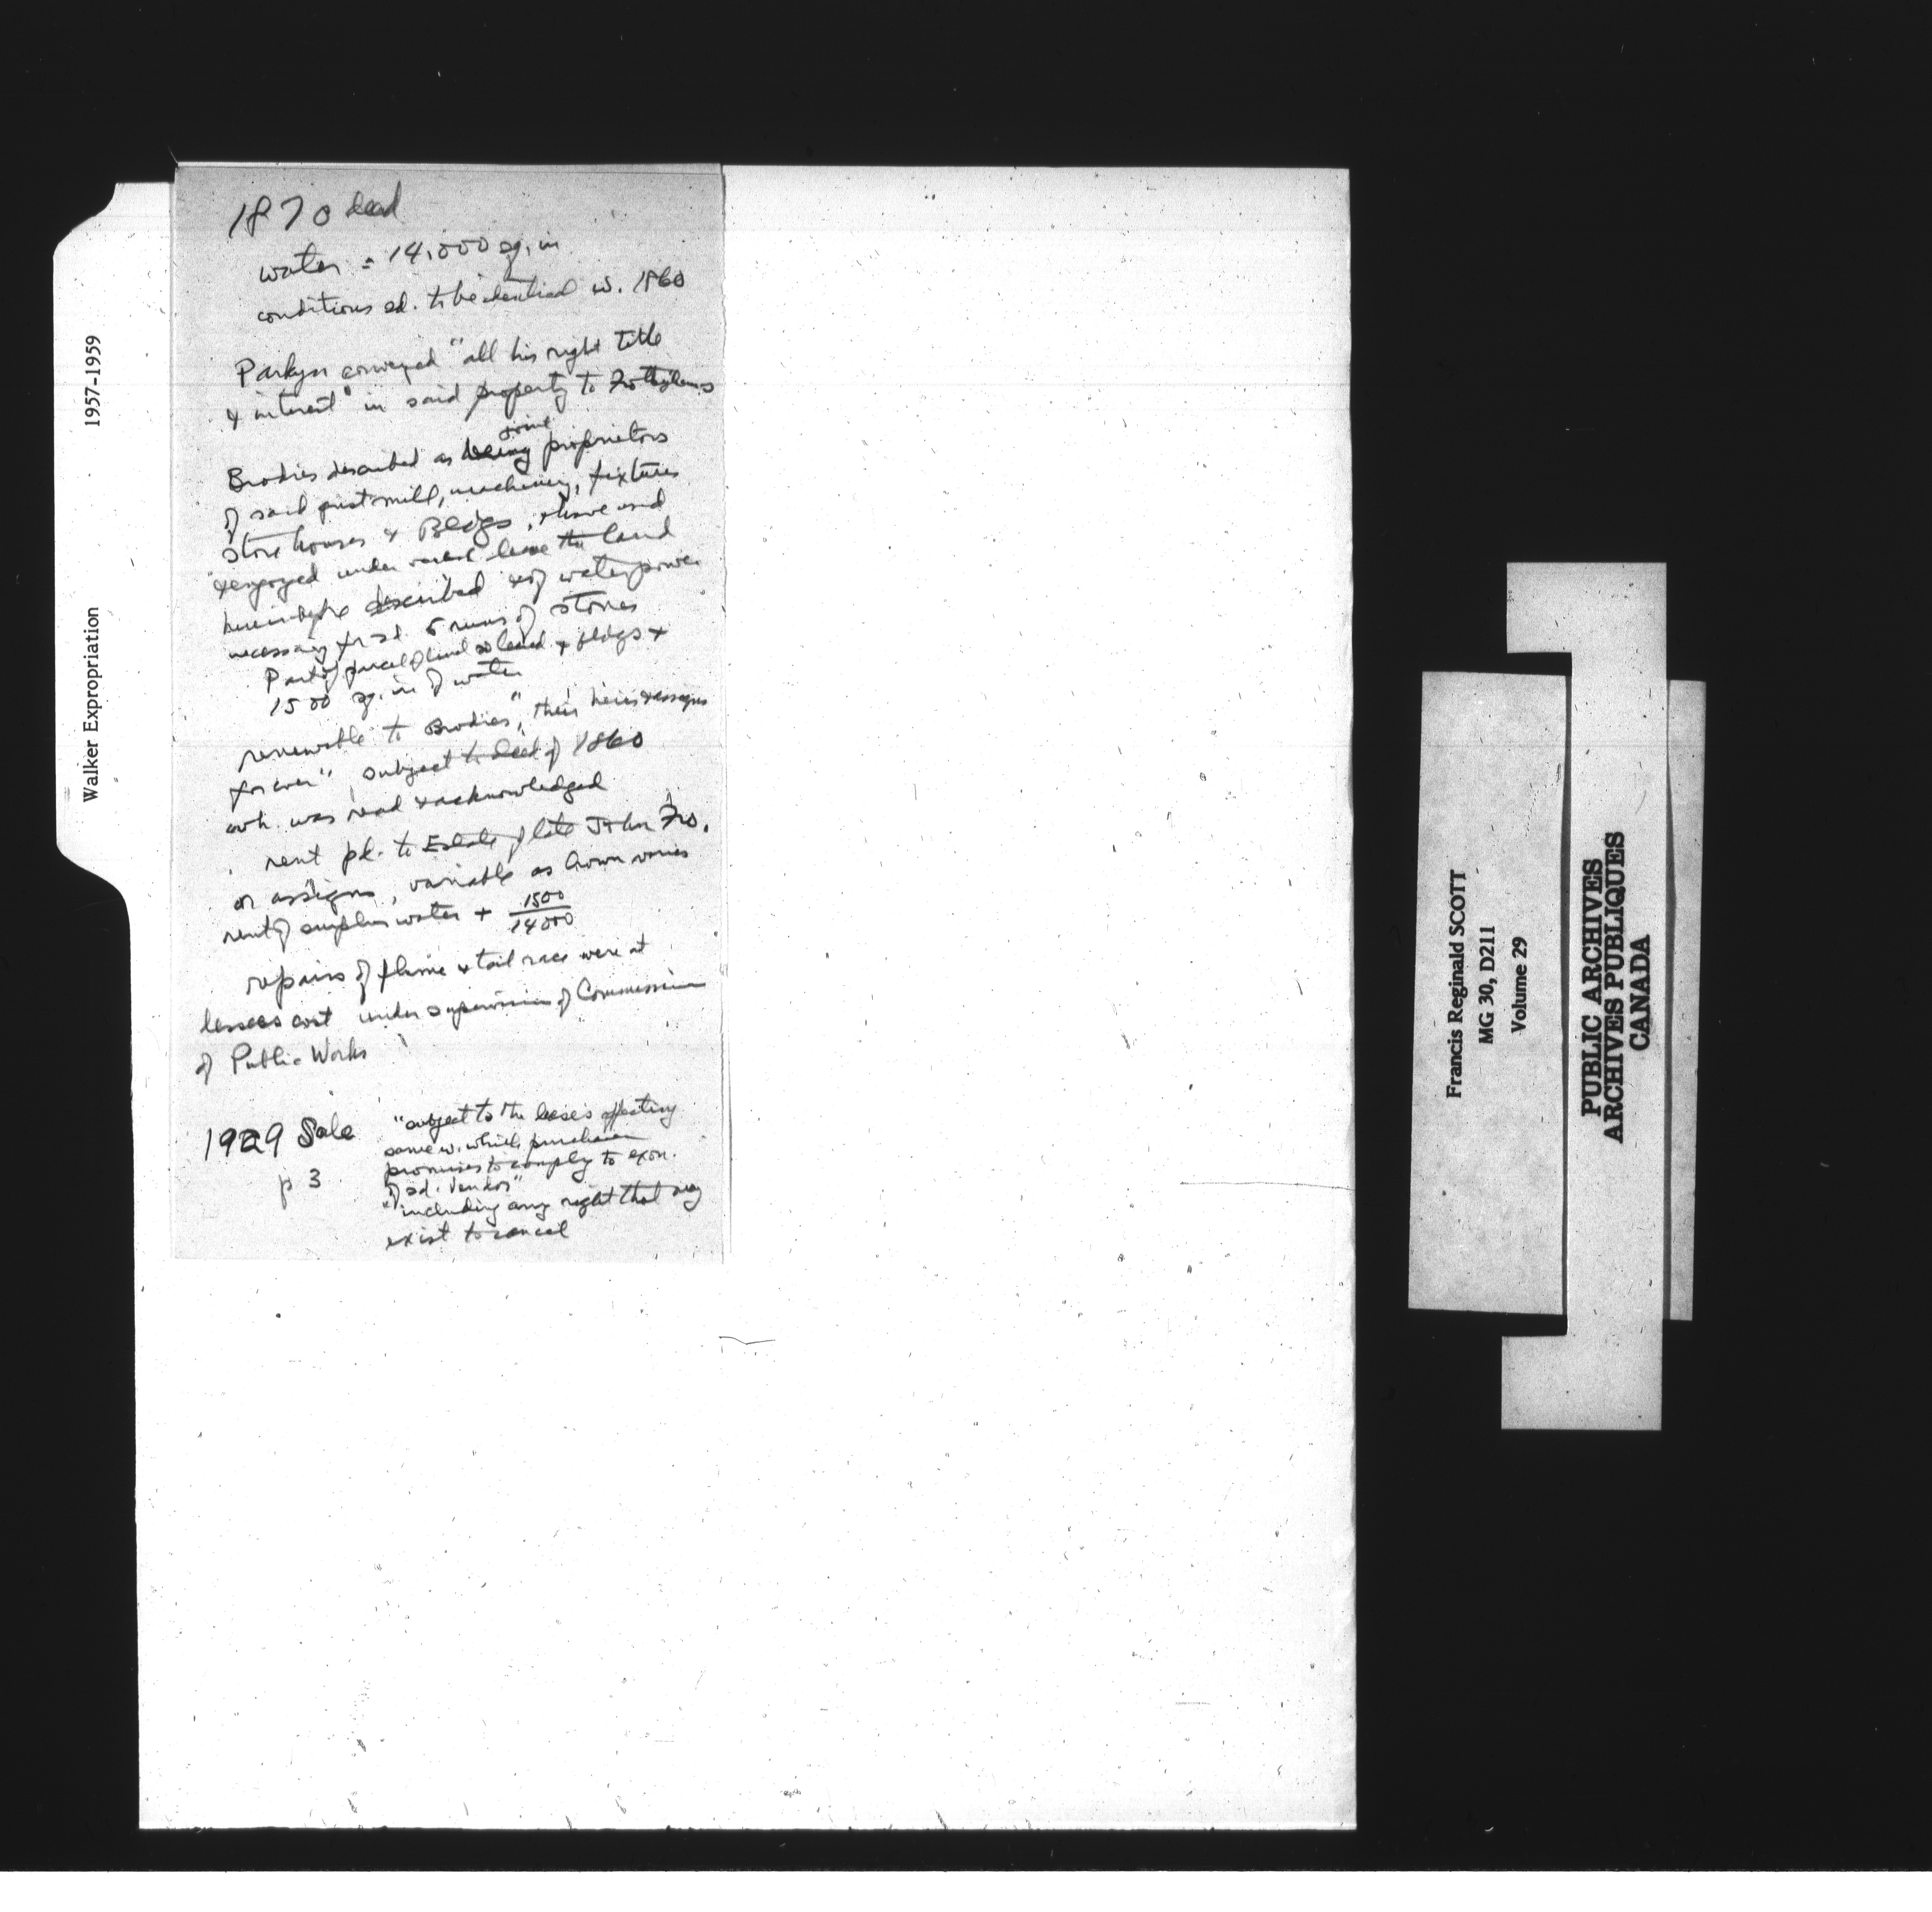 1870 deed
water = 14,000 sq. in
conditions sd. to be identical w. 1860
Parkyn conveyed "all his right title
& interest" in said property to Frothinghams
Brodies described as being joint proprietors
of said grist-mill, machinery, fixtures
store houses & Bldgs, & have used
"& enjoyed under lease the land
hereinbefore described & of waterpower
necessary for sd. 5 runs of stones
Part of parcel of land so leased & bldgs +
1500 sq. in of water
renewable to Brodies, "their heirs & assigns
forever" subject to deed of 1860
wh. was read & acknowledged
rent pd. to Estate of late John Fro.
or assigns, variable as Crown varies
rent of surplus water + 1500/14000
repairs of flume & tail race were at
lessees cost under supervision of Commission
of Public Works
1929 Sale
p 3
"subject to the leases affecting
same w. which purchaser
promises to comply to exon.
of sd. Vendor"
"including any right that may
exist to cancel
Walker Expropriation 1957-1959
Francis Reginald SCOTT
MG 30, D211
Volume 29
PUBLIC ARCHIVES
ARCHIVES PUBLIQUES
CANADA